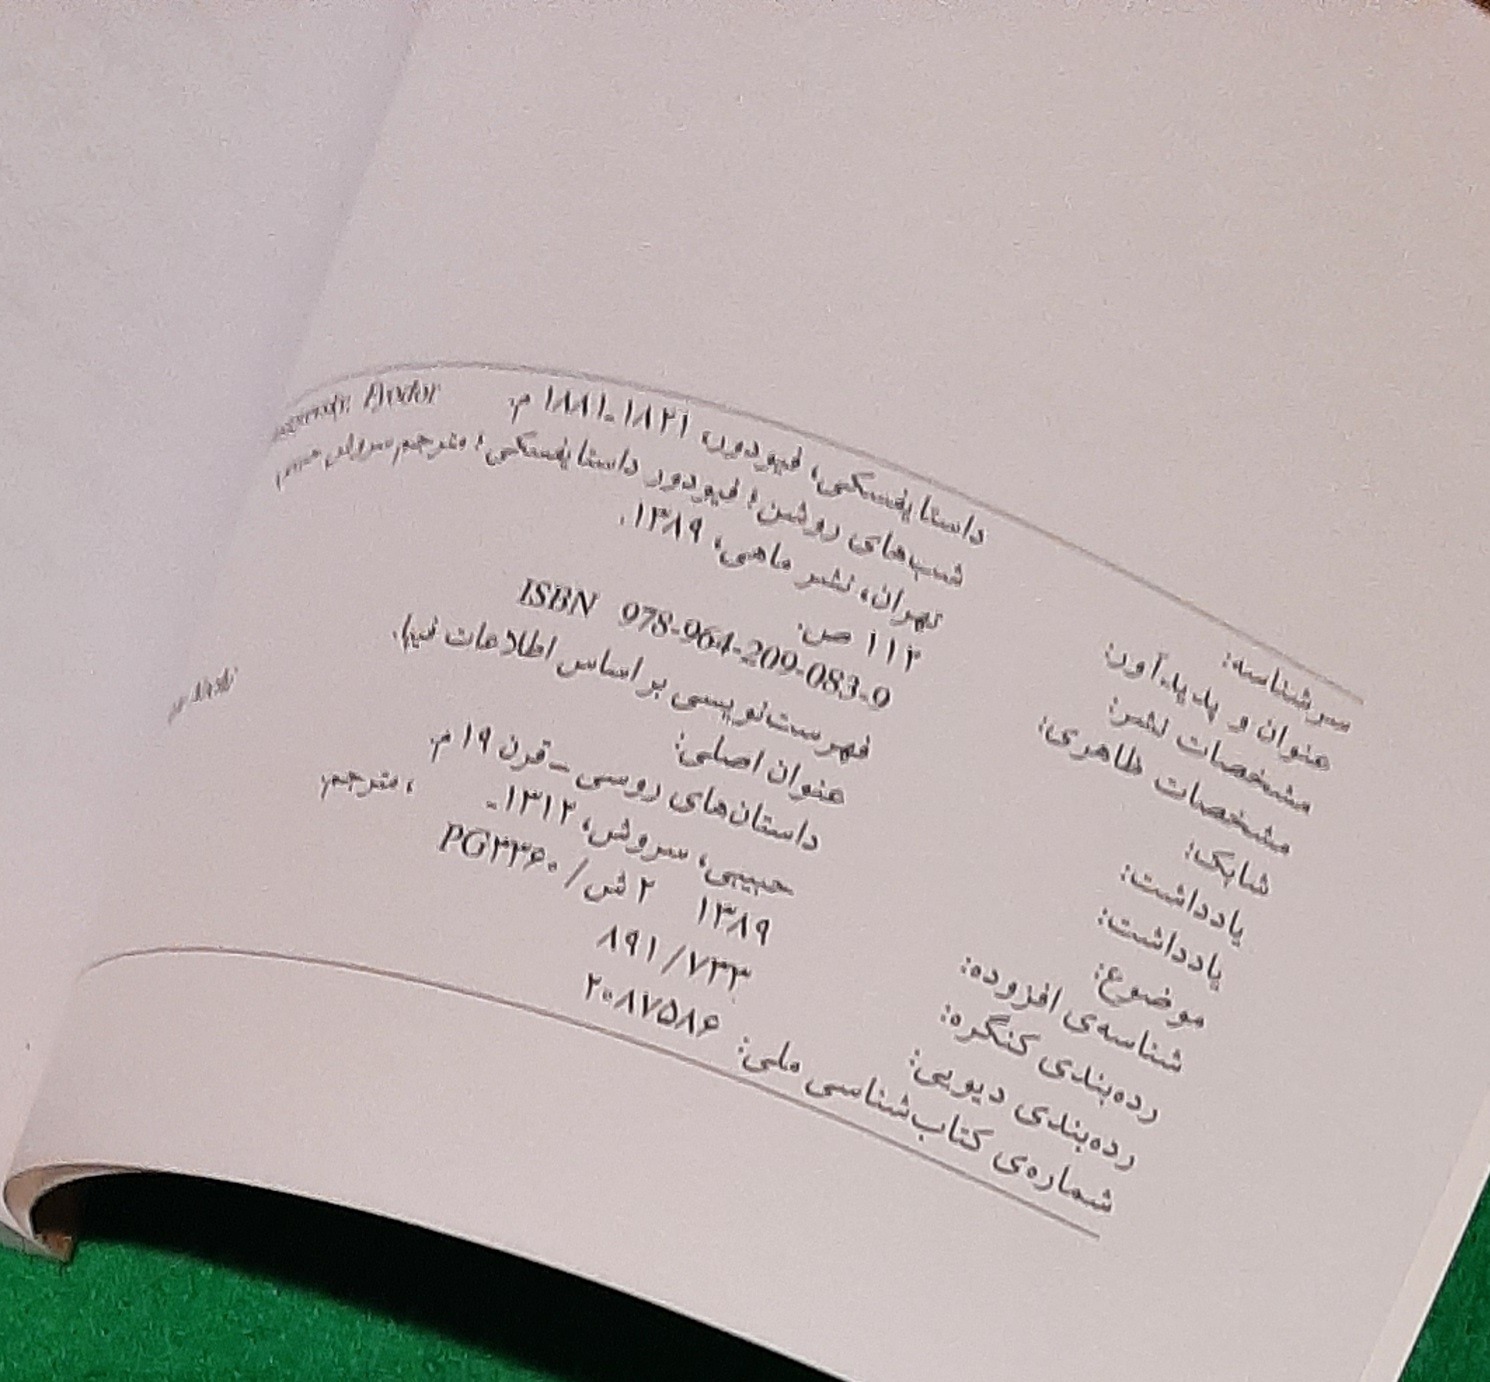 سرشناسه: داستایفسکی، فیودور، ۱۸۲۱ـ۱۸۸۱ م. Fyodor
عنوان و پدیدآور: شب‌های روشن؛ فیودور داستایفسکی؛ مترجم سروش حبیبی
مشخصات نشر: تهران، نشر ماهی، ۱۳۸۹.
مشخصات ظاهری: ۱۱۲ ص.
شابک: ISBN 978-964-209-083-9
یادداشت: فهرست‌نویسی بر اساس اطلاعات فیپا.
یادداشت: عنوان اصلی:
موضوع: داستان‌های روسی ـ قرن ۱۹ م.
شناسه‌ی افزوده: حبیبی، سروش، ۱۳۱۲ـ ، مترجم.
رده‌بندی کنگره: ۱۳۸۹ ۲ ش/ PG۳۳۶۰
رده‌بندی دیویی: ۸۹۱/۷۳۳
شماره‌ی کتاب‌شناسی ملی: ۲۰۸۷۵۸۶